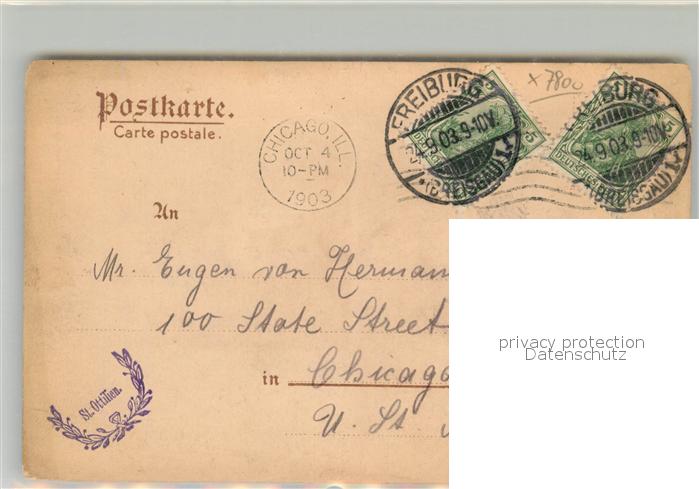 x 7800
Postkarte.
Carte postale.
CHICAGO, ILL.
OCT 4
10-PM
1903
FREIBURG
24.9.03.9-10V.
*(BREISGAU)1
BURG
24.9.03.9-10V.
(BREISGAU)1
DEUTSCHES
5
An
Mr. Eugen von Herman
100 State Street
in Chicago
U. St.
St. Ottilien.
privacy protection
Datenschutz